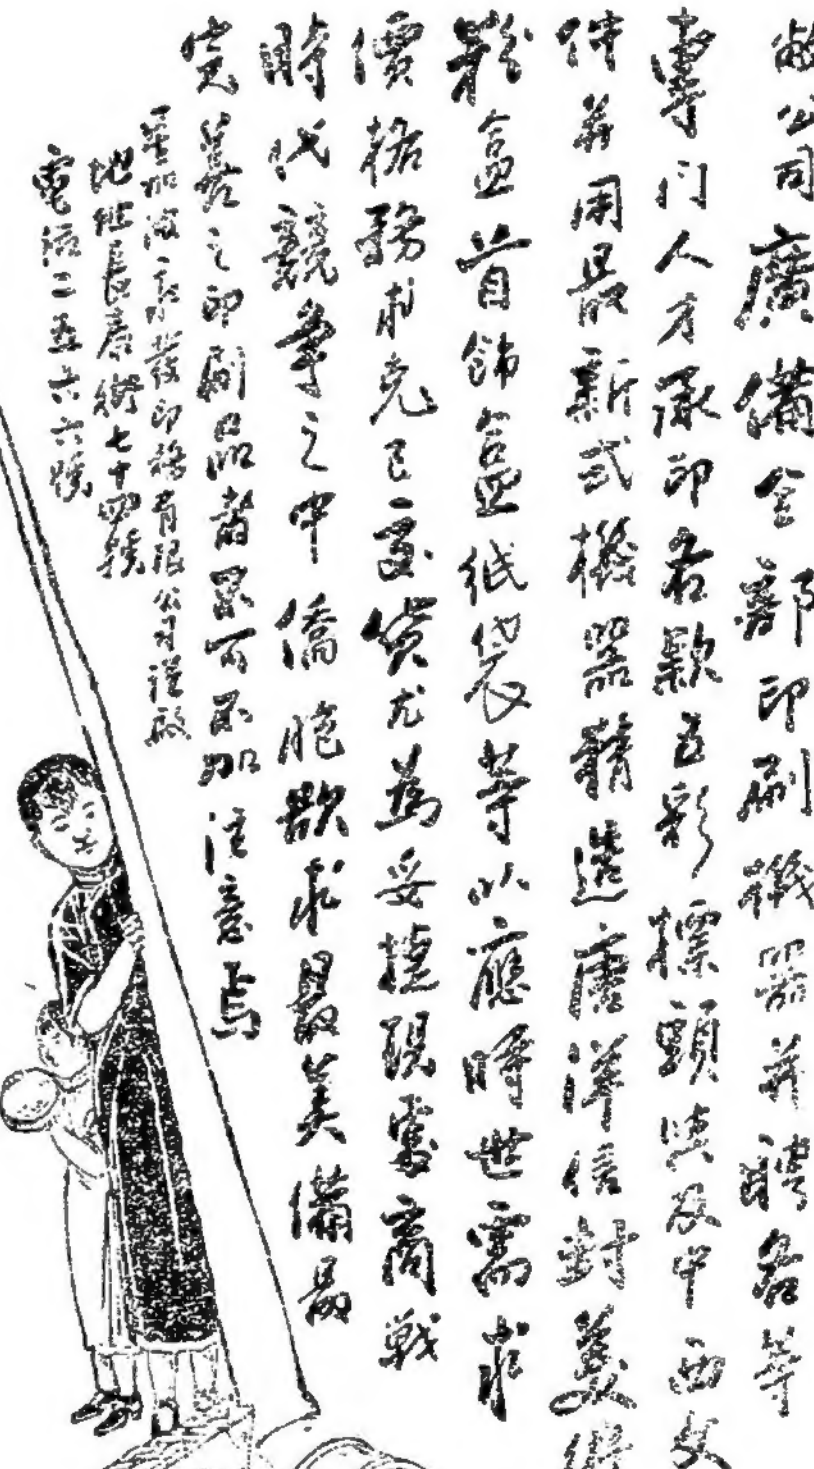 敝公司廣備全部印刷機器并聘各等
專門人才承印各款五彩標頭與及中西文
件并用最新式機器精造唐洋信封美術
粉盒首飾盒紙袋等以應時世需求
價格務求克己交貨尤為妥捷現處商戰
時代競爭之中僑胞欲求最美備最
完善之印刷品者曷可不加注意焉
星加坡永發印務有限公司謹啟
地址長泰街七十四號
電話二五六六號